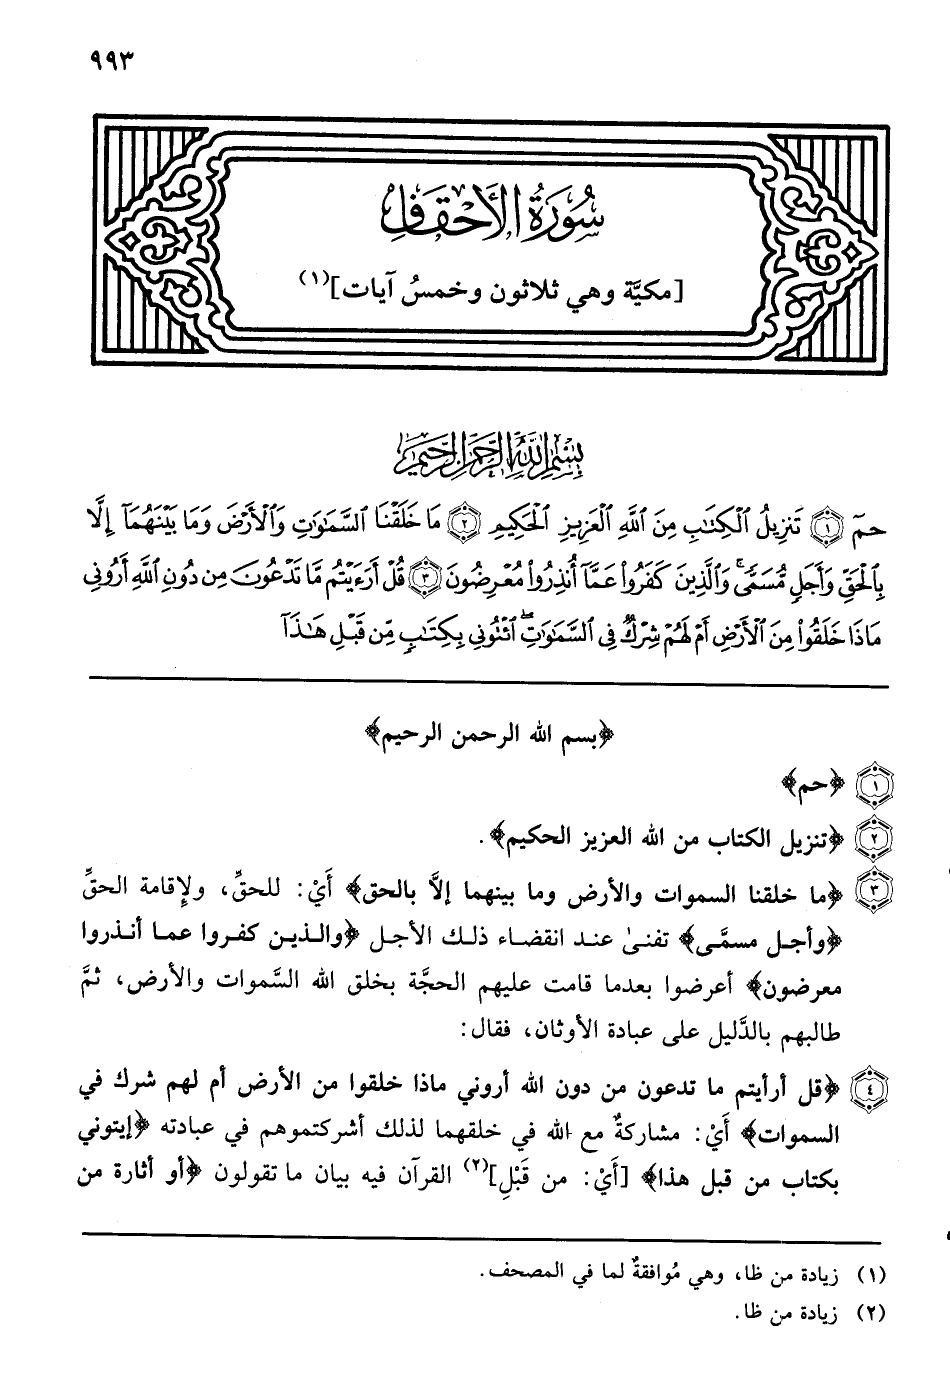 ٩٩٣
سُورَةُ الأَحْقَافِ
[مكيَّة وهي ثلاثون وخمسُ آيات](١)
بِسْمِ اللَّهِ الرَّحْمَنِ الرَّحِيمِ
حمٓ ١ تَنزِيلُ ٱلْكِتَٰبِ مِنَ ٱللَّهِ ٱلْعَزِيزِ ٱلْحَكِيمِ ٢ مَا خَلَقْنَا ٱلسَّمَٰوَٰتِ وَٱلْأَرْضَ وَمَا بَيْنَهُمَآ إِلَّا
بِٱلْحَقِّ وَأَجَلٍ مُّسَمًّى ۚ وَٱلَّذِينَ كَفَرُوا۟ عَمَّآ أُنذِرُوا۟ مُعْرِضُونَ ٣ قُلْ أَرَءَيْتُم مَّا تَدْعُونَ مِن دُونِ ٱللَّهِ أَرُونِى
مَاذَا خَلَقُوا۟ مِنَ ٱلْأَرْضِ أَمْ لَهُمْ شِرْكٌ فِى ٱلسَّمَٰوَٰتِ ۖ ٱئْتُونِى بِكِتَٰبٍ مِّن قَبْلِ هَٰذَآ
﴿بسم الله الرحمن الرحيم﴾
١ ﴿حم﴾
٢ ﴿تنزيل الكتاب من الله العزيز الحكيم﴾.
٣ ﴿ما خلقنا السموات والأرض وما بينهما إلاَّ بالحق﴾ أَيْ: للحقِّ، ولإقامة الحقِّ
﴿وأجل مسمَّى﴾ تفنىٰ عند انقضاء ذلك الأجل ﴿والذين كفروا عما أنذروا
معرضون﴾ أعرضوا بعدما قامت عليهم الحجَّة بخلق الله السَّموات والأرض، ثمَّ
طالبهم بالدَّليل على عبادة الأوثان، فقال:
٤ ﴿قل أرأيتم ما تدعون من دون الله أروني ماذا خلقوا من الأرض أم لهم شرك في
السموات﴾ أَيْ: مشاركةٌ مع الله في خلقهما لذلك أشركتموهم في عبادته ﴿إيتوني
بكتاب من قبل هذا﴾ [أَيْ: من قَبْلِ](٢) القرآن فيه بيان ما تقولون ﴿أو أثارة من
(١) زيادة من ظا، وهي مُوافقةٌ لما في المصحف.
(٢) زيادة من ظا.